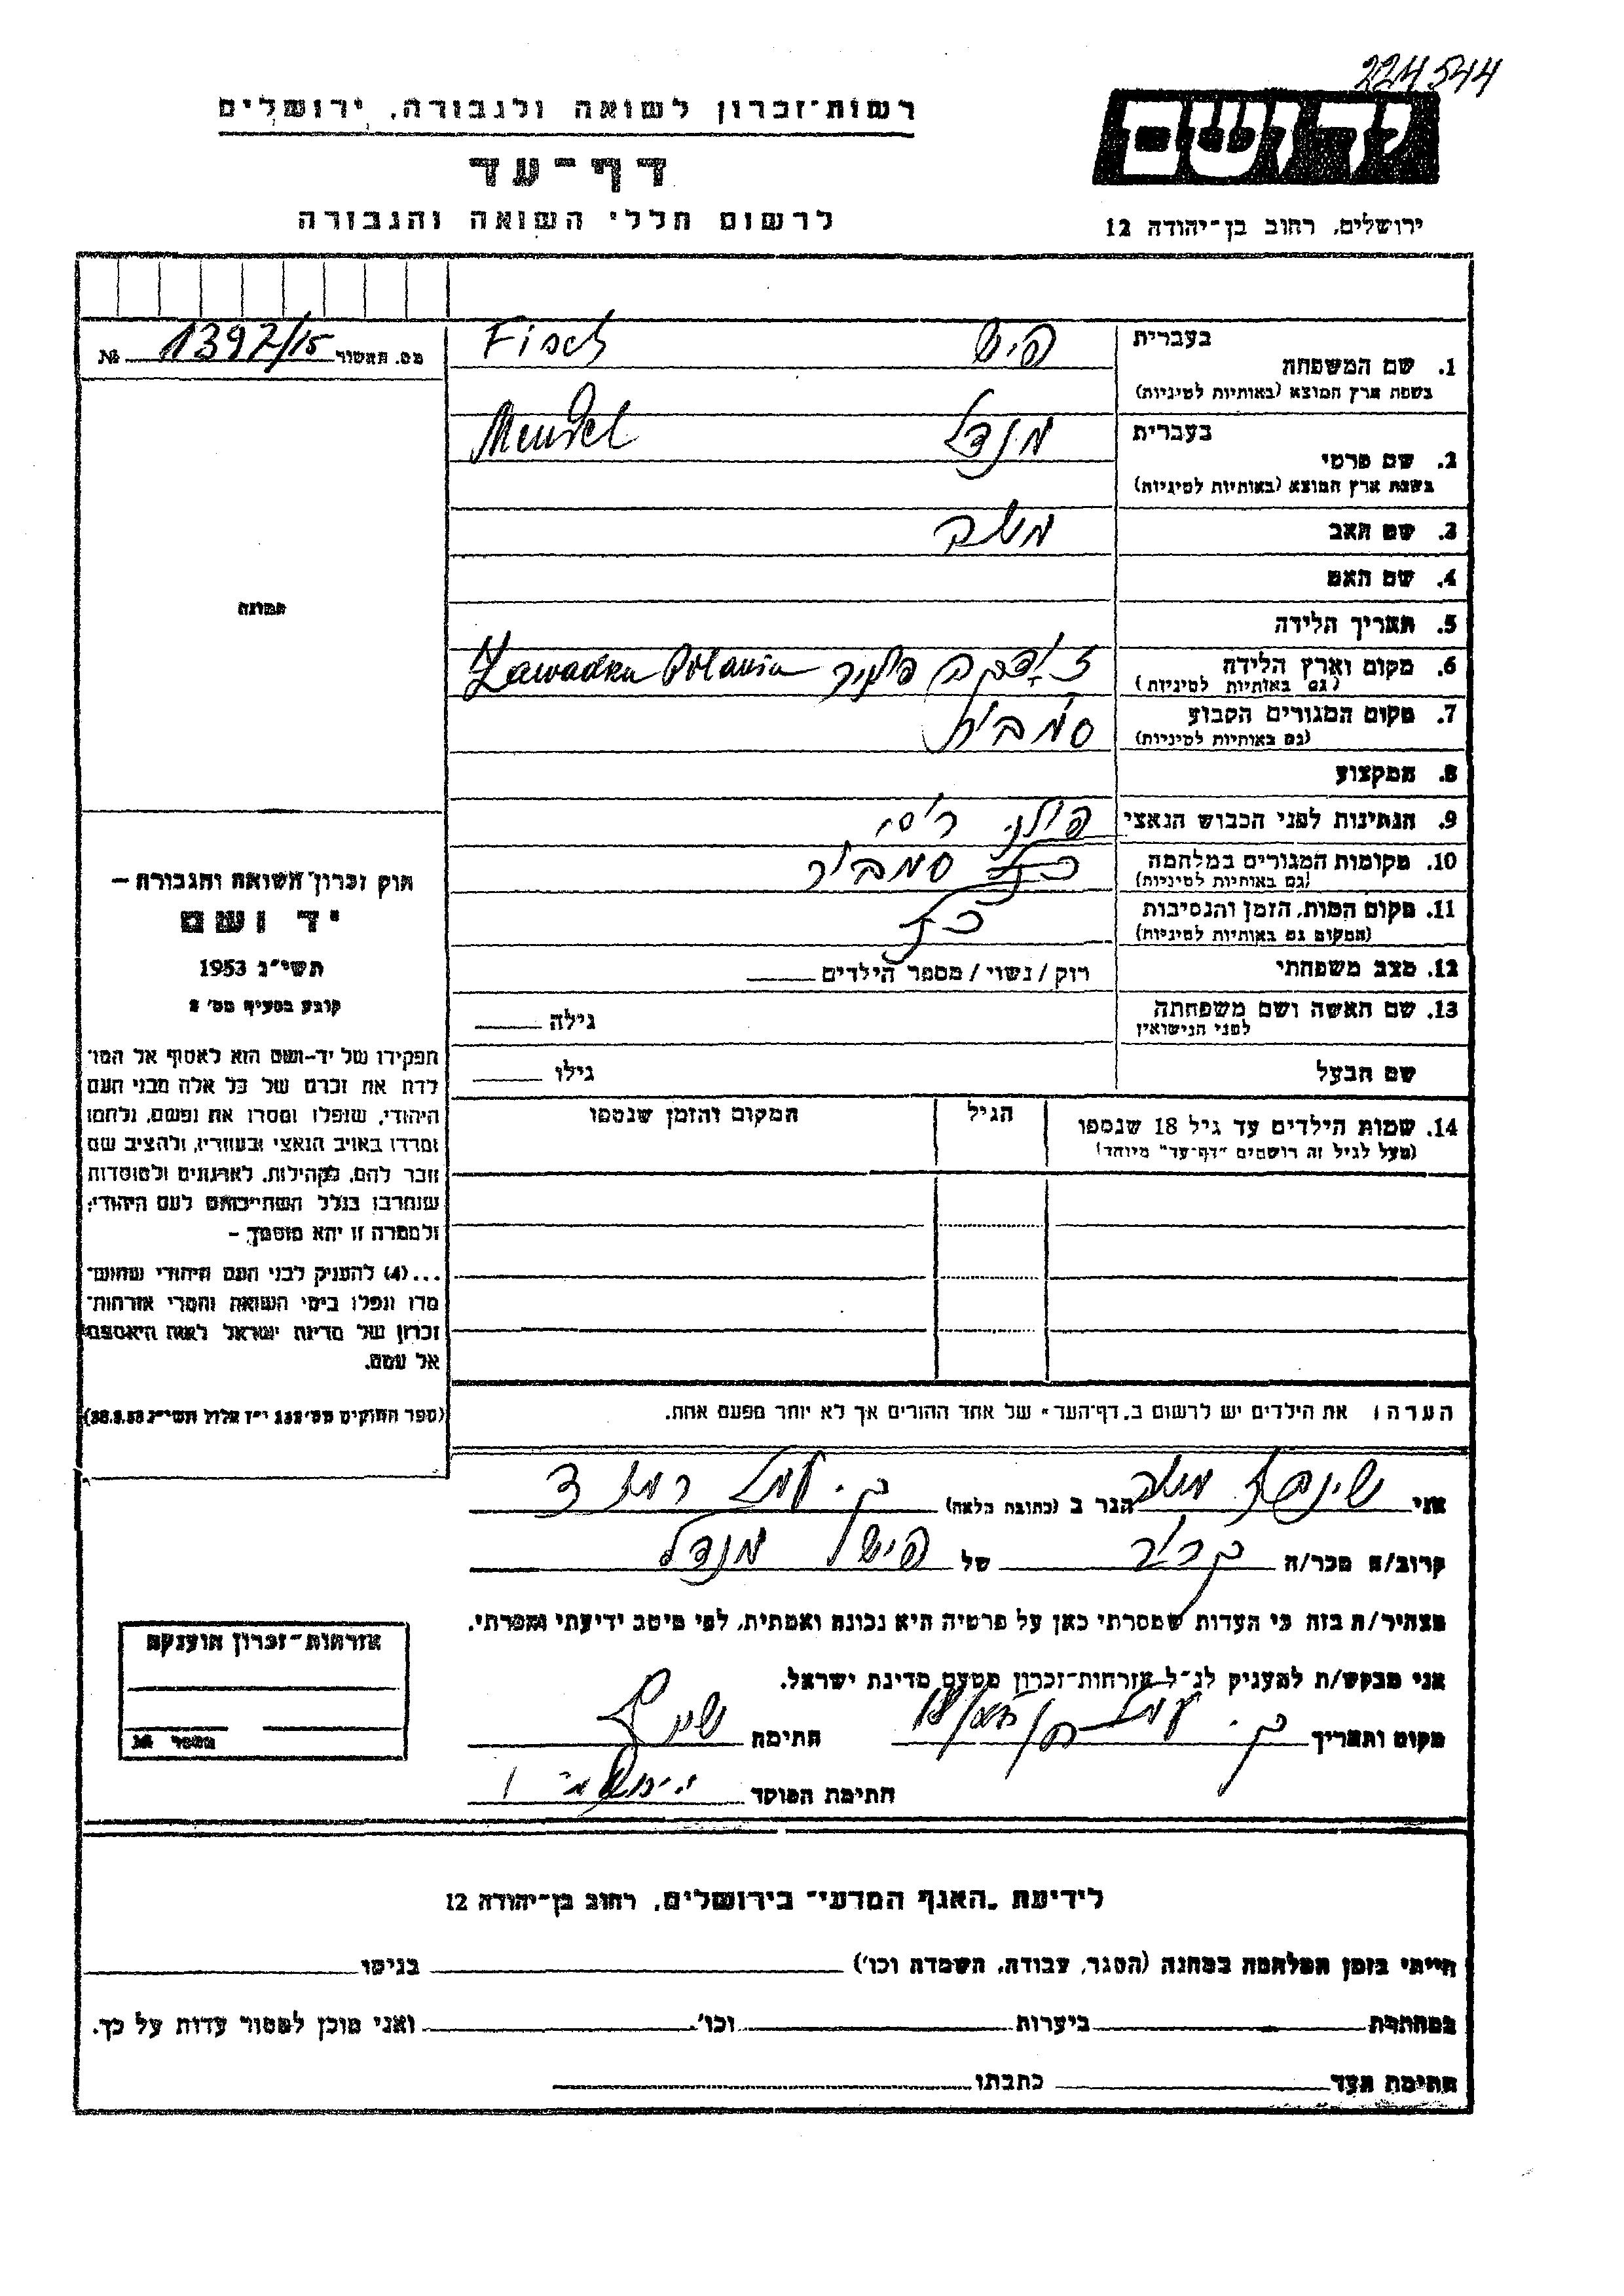 224544
רשות־זכרון לשואה ולגבורה, ירושלים
יד ושם
דף־עד
לרשום חללי השואה והגבורה
ירושלים, רחוב בן־יהודה 12
מס. האשור 1397/15 №
בעברית
1. שם המשפחה פיש Fisch
בשפת ארץ המוצא (באותיות לטיניות)
בעברית
2. שם פרטי מנדל Mendel
בשפת ארץ המוצא (באותיות לטיניות)
3. שם האב משה
4. שם האם
5. תאריך הלידה
6. מקום וארץ הלידה Zawadka Polania
(גם באותיות לטיניות)
7. מקום המגורים הקבוע
(גם באותיות לטיניות)
8. המקצוע
9. הנתינות לפני הכבוש הנאצי פולני
10. מקומות המגורים במלחמה סמביר
(גם באותיות לטיניות)
11. מקום המות, הזמן והנסיבות
(המקום גם באותיות לטיניות)
12. מצב משפחתי רוק / נשוי / מספר הילדים
13. שם האשה ושם משפחתה גילה
לפני הנישואין
שם הבעל גילו
14. שמות הילדים עד גיל 18 שנספו הגיל המקום והזמן שנספו
(מעל לגיל זה רושמים "דף־עד" מיוחד)
תמונה
חוק זכרון השואה והגבורה –
יד ושם
תשי״ג 1953
קובע בסעיף מס׳ 2
תפקידו של יד-ושם הוא לאסוף אל המו־
לדת את זכרם של כל אלה מבני העם
היהודי, שנפלו ומסרו את נפשם, נלחמו
ומרדו באויב הנאצי ובעוזריו, ולהציב שם
וזכר להם, לקהילות, לארגונים ולמוסדות
שנחרבו בגלל השתייכותם לעם היהודי;
ולמטרה זו יהא מוסמך –
...(4) להעניק לבני העם היהודי שהוש־
מדו ונפלו בימי השואה והמרי אזרחות־
זכרון של מדינת ישראל לאות היאספם
אל עמם.
(ספר החוקים מס׳ 132 י״ז אלול תשי״ג 28.8.53)
הערה: את הילדים יש לרשום ב„דף־העד״ של אחד ההורים אך לא יותר מפעם אחת.
אני משה הגר ב (כתובת מלאה)
קרוב/ה מכר/ה של פיש מנדל
מצהיר/ה בזה כי העדות שמסרתי כאן על פרטיה היא נכונה ואמתית, לפי מיטב ידיעתי והכרתי.
אני מבקש/ת להעניק לנ״ל אזרחות־זכרון מטעם מדינת ישראל.
מקום ותאריך חתימה
חתימת הפוסד
אזרחות־זכרון הוענקה
מספר №
לידיעת „האגף המדעי״ בירושלים, רחוב בן־יהודה 12
הייתי בזמן המלחמה במחנה (הסגר, עבודה, השמדה וכו׳) בגיטו
במחתרת ביערות וכו׳ ואני מוכן למסור עדות על כך.
חתימת העד כתבתו